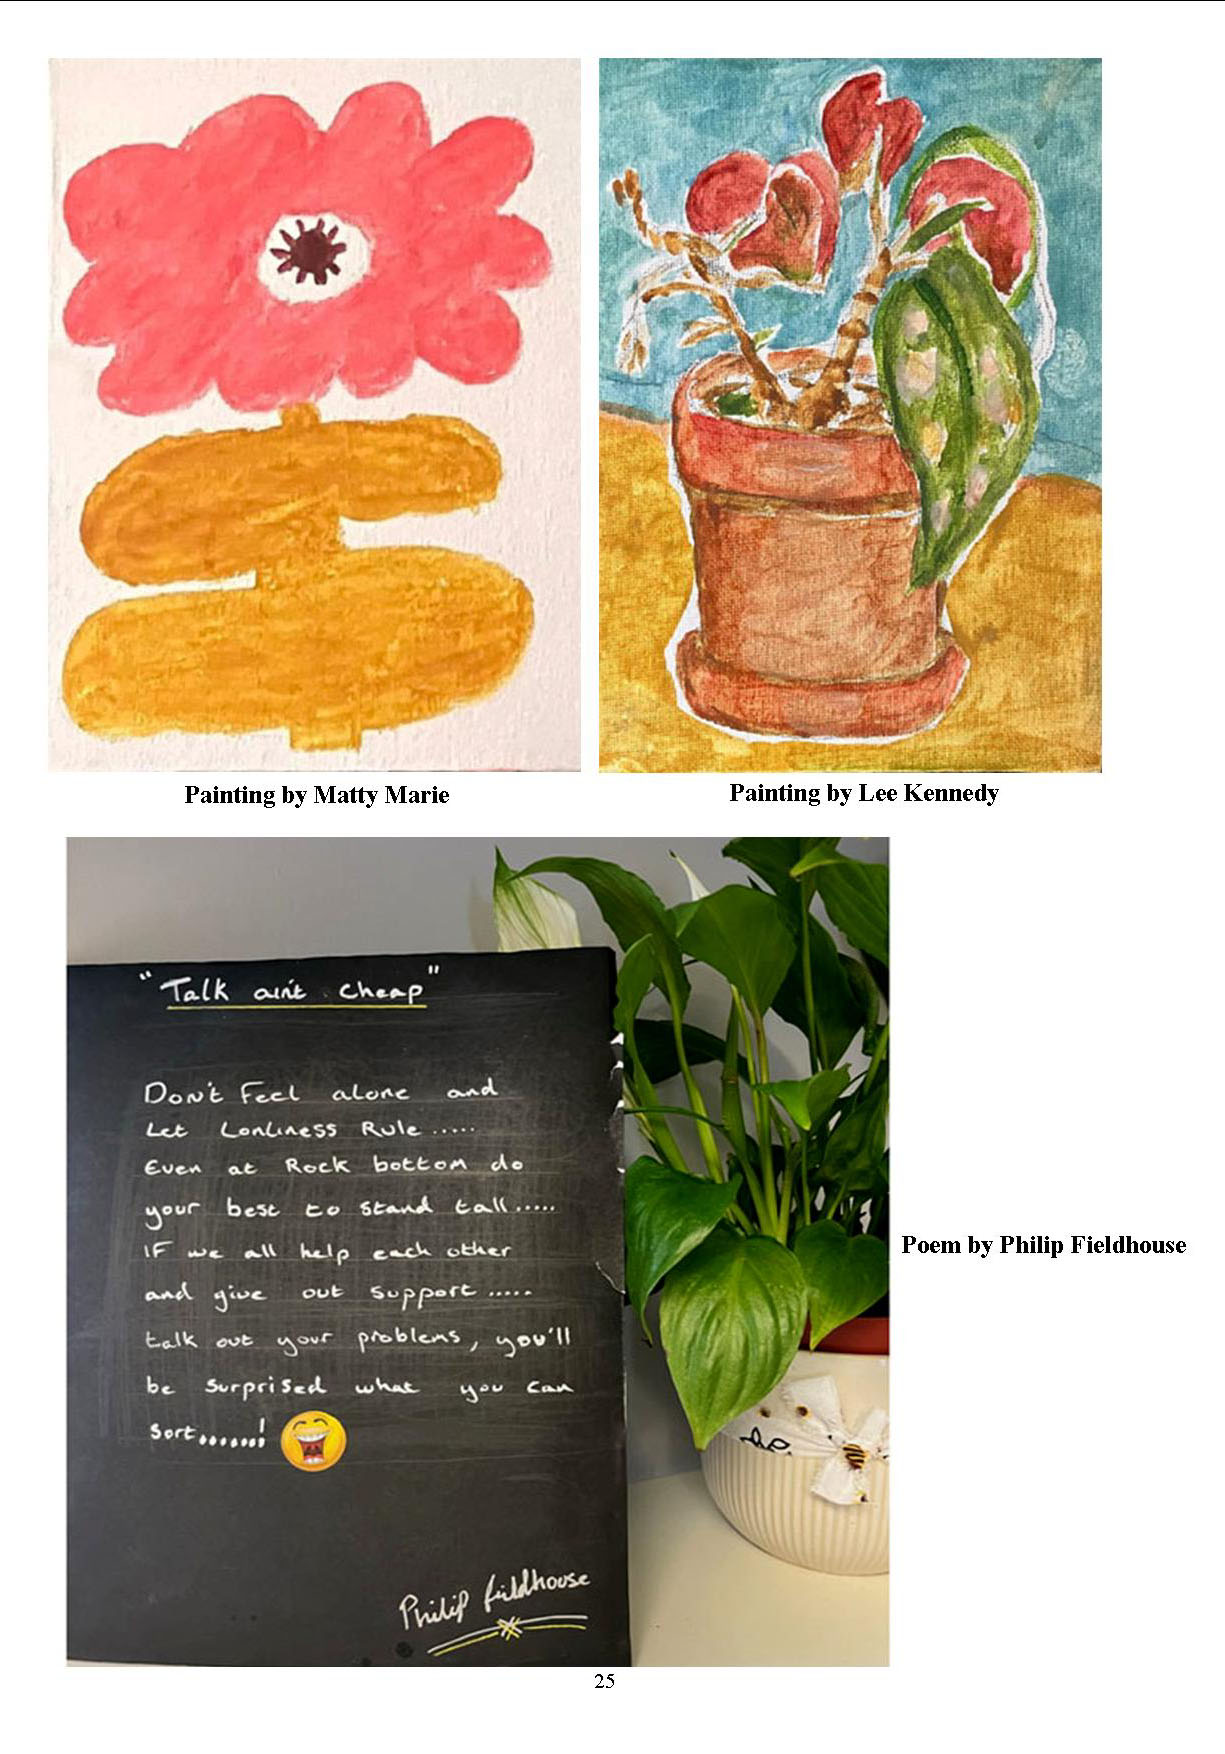 Painting by Matty Marie
Painting by Lee Kennedy
"Talk ain't cheap"
Don't Feel alone and
Let Lonliness Rule.....
Even at Rock bottom do
your best to stand tall.....
IF we all help each other
and give out support.....
talk out your problems, you'll
be surprised what you can
sort.......!
Philip fieldhouse
Poem by Philip Fieldhouse
25